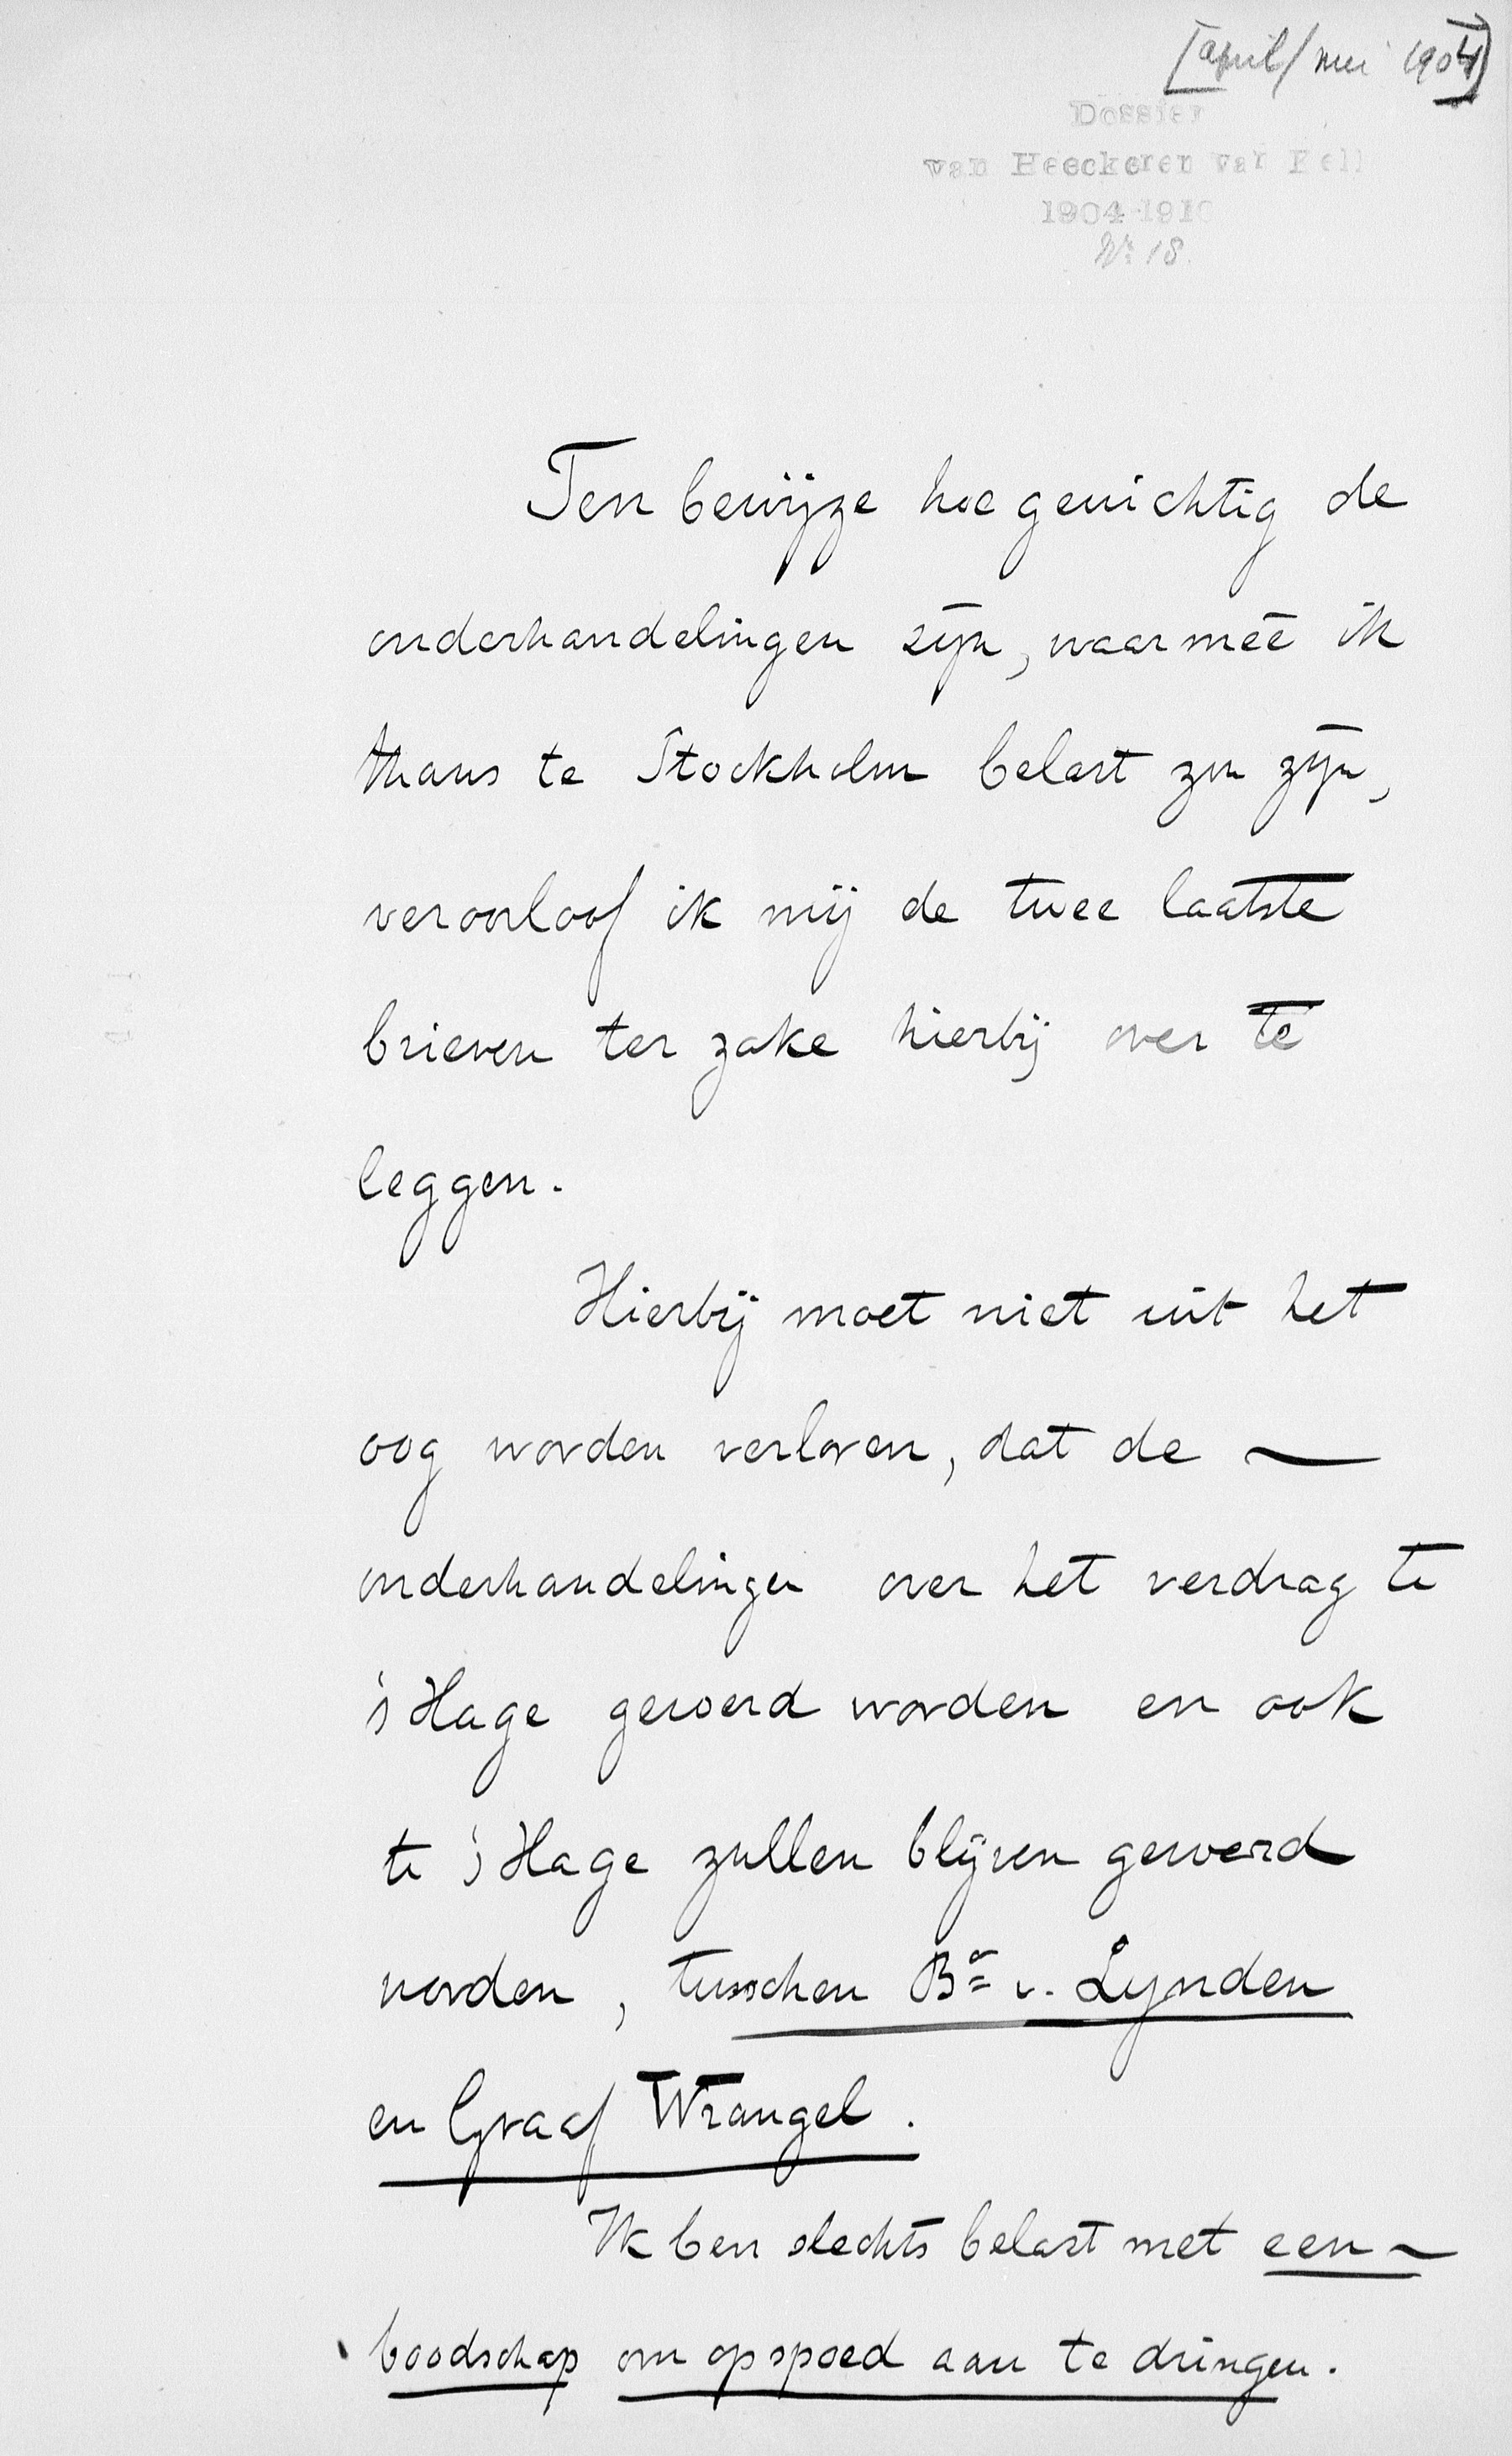 [april/mei 1904]
Dossier
van Heeckeren van Kell
1904-1910
Nº 18.
Ten bewijze hoe gewichtig de
onderhandelingen zijn, waarmeê ik
thans te Stockholm belast zou zijn,
veroorloof ik mij de twee laatste
brieven ter zake hierbij over te
leggen.
Hierbij moet niet uit het
oog worden verloren, dat de —
onderhandelingen over het verdrag te
's Hage gevoerd worden en ook
te 's Hage zullen blijven gevoerd
worden, tusschen Bn v. Lynden
en Graaf Wrangel.
Ik ben slechts belast met een —
boodschap om op spoed aan te dringen.